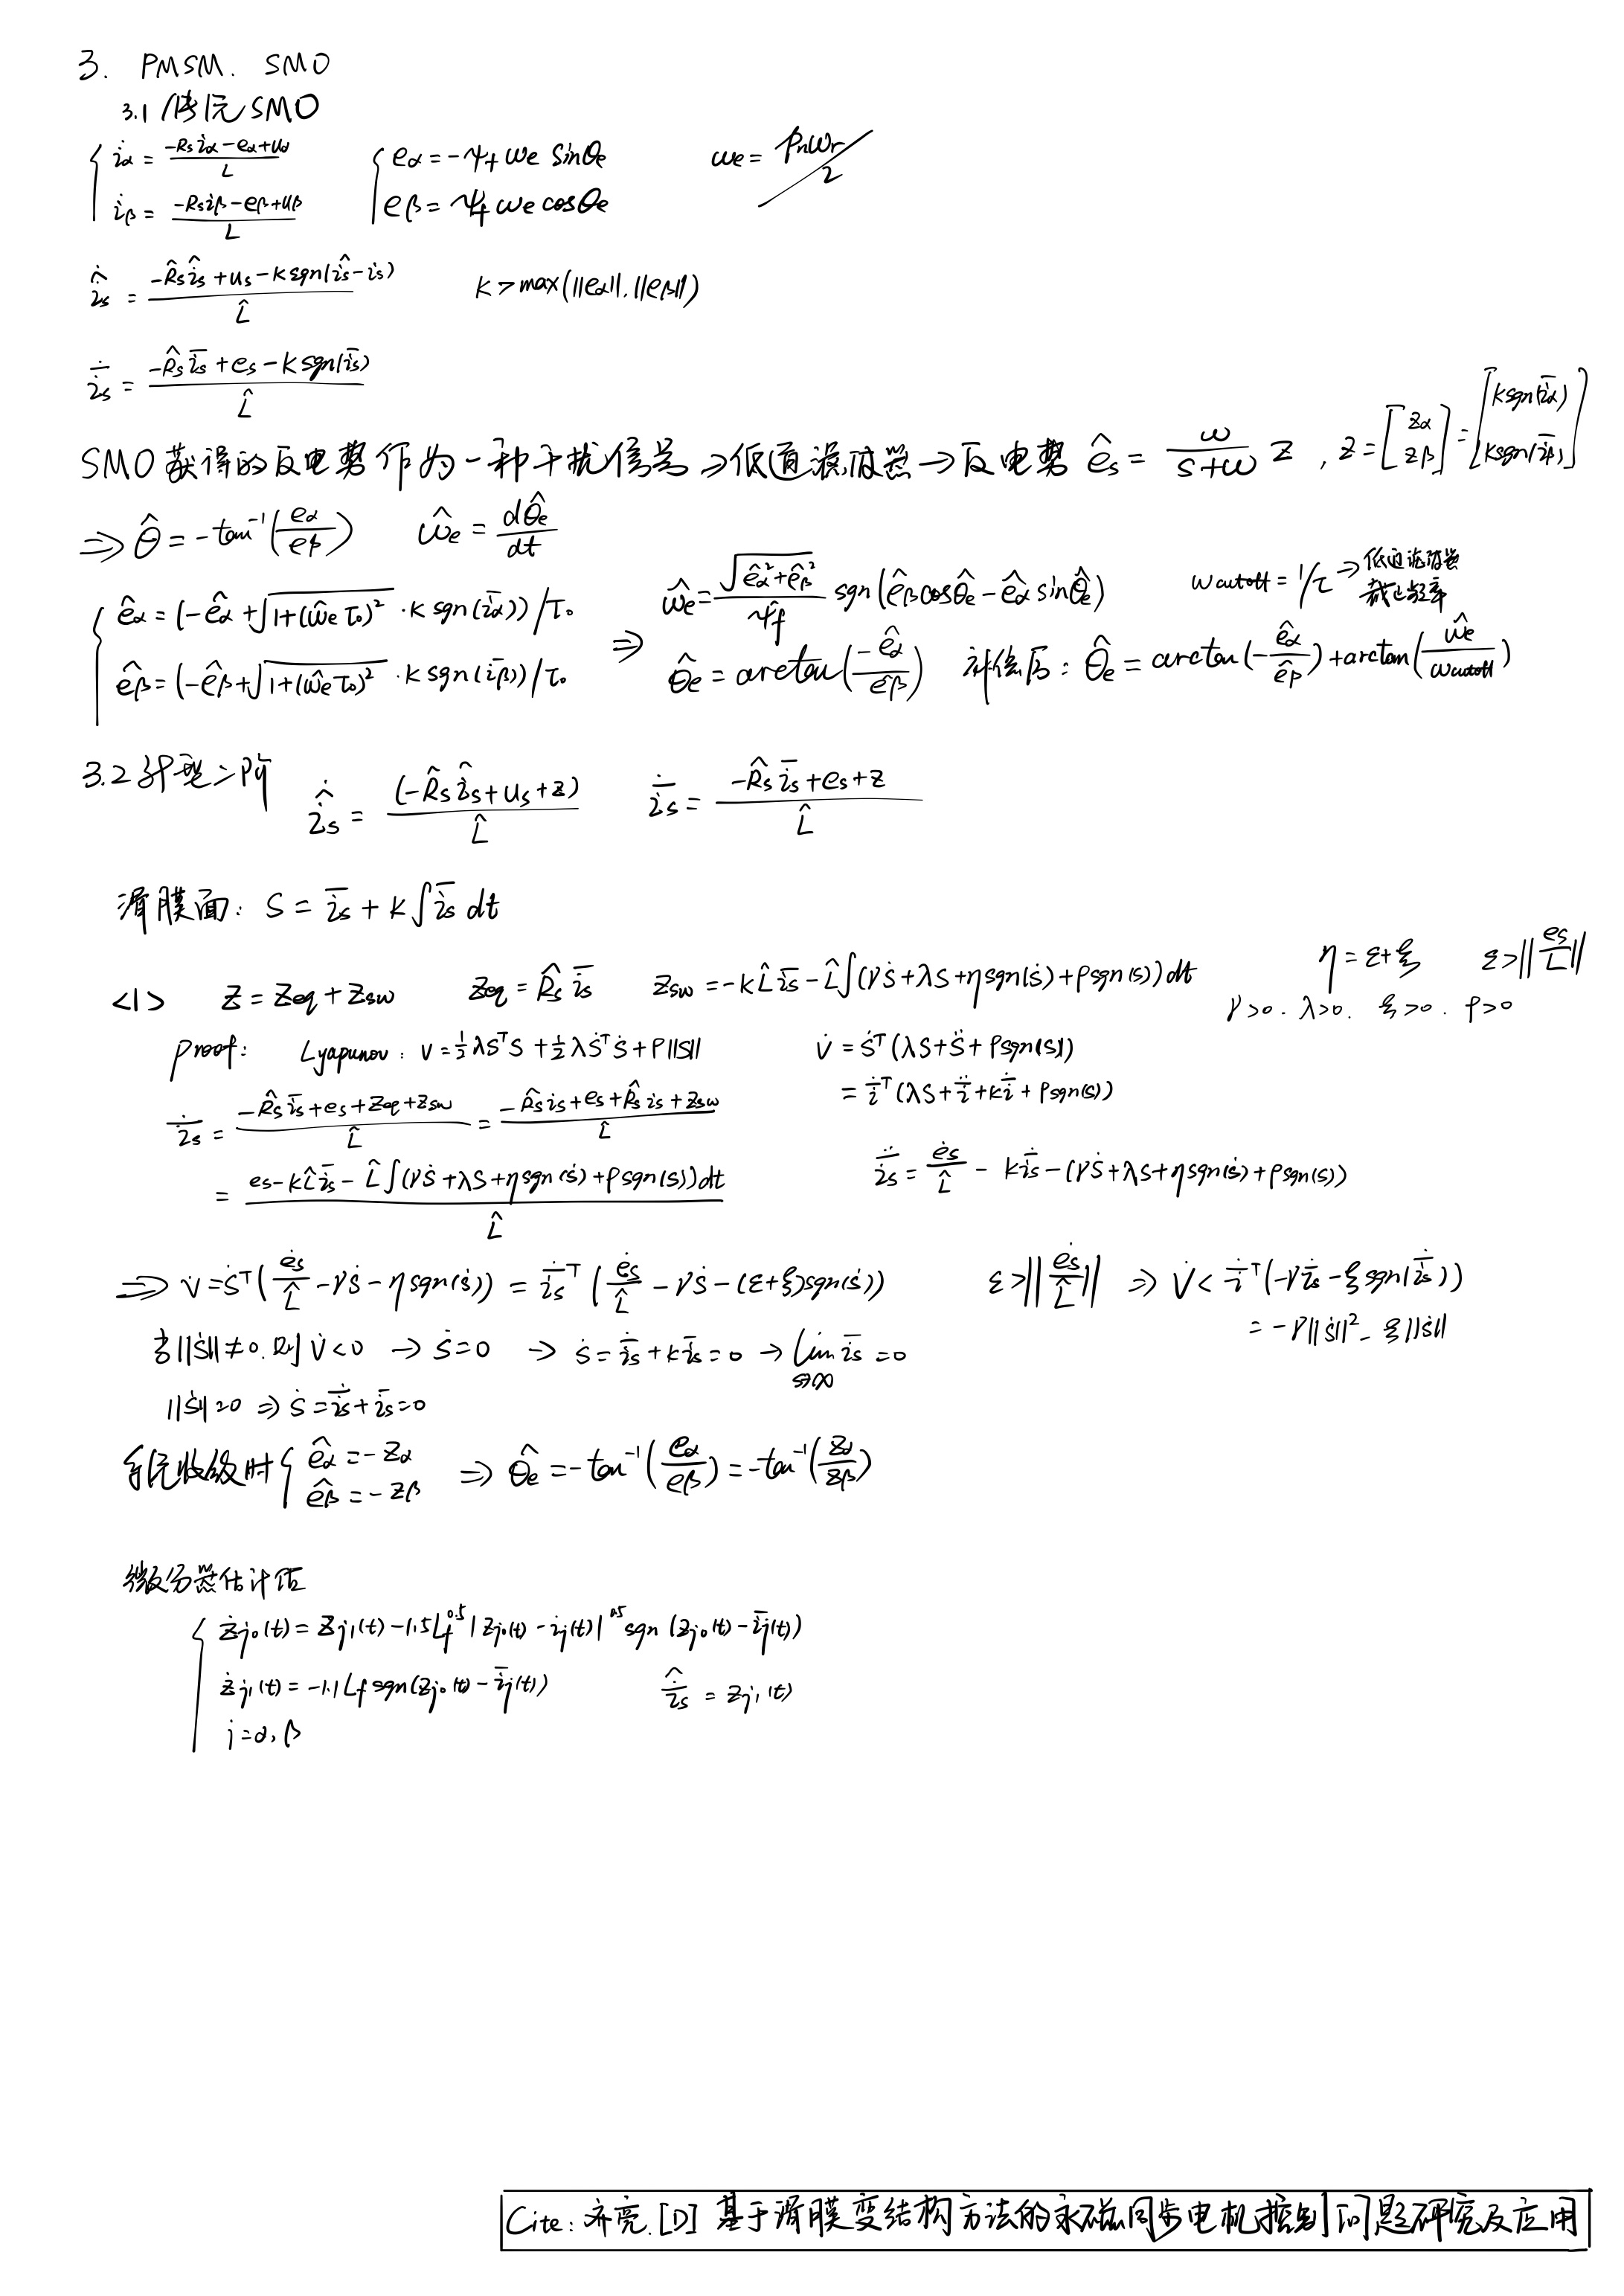 3. PMSM. SMO
3.1 传统SMO
{ i̇α = (-Rs iα - eα + uα)/L { eα = -ψf ωe sinθe ωe = Pnωr/2
i̇β = (-Rs iβ - eβ + uβ)/L eβ = ψf ωe cosθe
î̇s = (-R̂s îs + us - k sgn(îs - is))/L̂ K > max(||eα||, ||eβ||)
i̅̇s = (-R̂s i̅s + es - k sgn(i̅s))/L̂
SMO获得的反电势作为一种干扰信号 ⇒ 低通滤波器 → 反电势 ês = ω/(s+ω) z , z = [zα zβ] = [k sgn(i̅α) k sgn(i̅β)]
⇒ θ̂ = -tan⁻¹(eα/eβ) ω̂e = dθ̂e/dt
{ ê̇α = (-êα + √(1+(ω̂e τ₀)²) · k sgn(i̅α))/τ₀ ⇒ ω̂e = √(êα²+êβ²)/ψ̂f sgn(êβ cosθ̂e - êα sinθ̂e) ωcutoff = 1/τ → 低通滤波器截止频率
ê̇β = (-êβ + √(1+(ω̂e τ₀)²) · k sgn(i̅β))/τ₀ θ̂e = arctan(-êα/êβ) 补偿后: θ̂e = arctan(-êα/êβ) + arctan(ω̂e/ωcutoff)
3.2 新型二阶 î̇s = (-R̂s îs + us + z)/L̂ i̅̇s = (-R̂s i̅s + es + z)/L̂
滑膜面: S = i̅s + k∫i̅s dt
<1> Z = Zeq + Zsw Zeq = R̂s i̅s Zsw = -kL̂i̅s - L̂∫(γṡ + λs + η sgn(ṡ) + ρ sgn(s))dt η = ε+ξ ε > ||ės/L̂||
γ>0. λ>0. ξ>0. ρ>0
proof: Lyapunov: V = ½λSᵀS + ½λṠᵀṠ + ρ||S|| V̇ = Ṡᵀ(λS + S̈ + ρ sgn(S))
= i̅̇ᵀ(λS + i̅̈ + k i̅̇ + ρ sgn(s))
i̅̇s = (-R̂s i̅s + es + Zeq + Zsw)/L̂ = (-R̂s is + es + R̂s is + Zsw)/L̂
= (es - kL̂i̅s - L̂∫(γṡ + λs + η sgn(ṡ) + ρ sgn(s))dt)/L̂ i̅̈s = ės/L̂ - k i̅̇s - (γṡ + λs + η sgn(ṡ) + ρ sgn(s))
⇒ V̇ = Ṡᵀ(ės/L̂ - γṡ - η sgn(ṡ)) = i̅̇sᵀ(ės/L̂ - γṡ - (ε+ξ)sgn(ṡ)) ε > ||ės/L̂|| ⇒ V̇ < i̅̇ᵀ(-γ i̅̇s - ξ sgn(i̅̇s))
= -γ||ṡ||² - ξ||ṡ||
若||ṡ|| ≠ 0. 则 V̇ < 0 → ṡ = 0 → ṡ = i̅̇s + k i̅s = 0 → lim s→∞ i̅s = 0
||ṡ|| = 0 ⇒ ṡ = i̅̇s + i̅s = 0
系统收敛时 { êα = -zα êβ = -zβ ⇒ θ̂e = -tan⁻¹(eα/eβ) = -tan⁻¹(zα/zβ)
微分器估计值
{ żj0(t) = zj1(t) - 1.5Lf^0.5 |zj0(t) - ij(t)|^0.5 sgn(zj0(t) - i̅j(t))
żj1(t) = -1.1Lf sgn(zj0(t) - i̅j(t)) i̅̇̂s = zj1(t)
j = α, β
Cite: 齐亮. [D] 基于滑膜变结构方法的永磁同步电机控制问题研究及应用